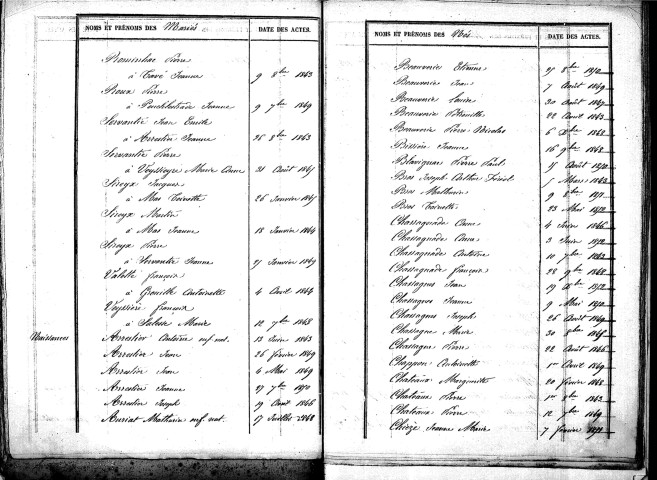 NOMS ET PRÉNOMS DES Mariés DATE DES ACTES.
Pierre
à Cavé Jeanne 9 8bre 1863
Roux Pierre
à Jeanne 9 7bre 1869
Servantie Jean Emile
à Arrestier Jeanne 26 8bre 1863
Servantie Pierre
à Veysseyre Marie Anne 31 Août 1865
Sireyx Jacques
à Mas Toinette 26 Janvier 1865
Sireyx Martin
à Mas Jeanne 18 Janvier 1864
Sireyx Pierre
à Servantie Jeanne 21 Janvier 1869
Valette François
à Antoinette 4 Avril 1864
Veyssière François
à Marie 12 7bre 1868
Naissances Arrestier Antoine enf. nat. 13 Juin 1863
Arrestier Jean 26 février 1869
Arrestier Jean 4 Mai 1869
Arrestier Jeanne 27 7bre 1870
Arrestier Joseph 19 Août 1866
Auriat Mathurin enf. nat. 17 Juillet 1868
NOMS ET PRÉNOMS DES Nés DATE DES ACTES.
Beauverie Etienne 27 8bre 1870
Beauverie Jean 7 Août 1869
Beauverie Louise 30 Août 1867
Beauverie Pétronille 22 Avril 1863
Beauverie Pierre Nicolas 6 Xbre 1868
Boissière Jeanne 16 9bre 1868
Pierre Paul 27 Août 1870
Bros Joseph Arthur 5 Mars 1863
Bros Mathurin 9 8bre 1871
Bros Toinette 23 Mai 1872
Chassagnade Anna 4 Juin 1866
Chassagnade Anna 3 Juin 1872
Chassagnade Antoine 10 7bre 1863
Chassagnade François 28 9bre 1868
Chassagnes Jean 19 Xbre 1872
Chassagnes Jeanne 9 Mai 1870
Chassagnes Joseph 26 Août 1869
Chassagne Marie 30 8bre 1865
Chassagne Pierre 22 Août 1866
Chappon Antoinette 1er Avril 1869
Chateaux Marguerite 20 février 1868
Chateaux Pierre 1er 8bre 1863
Chateaux Pierre 12 9bre 1869
Chièze Jeanne Marie 7 février 1871